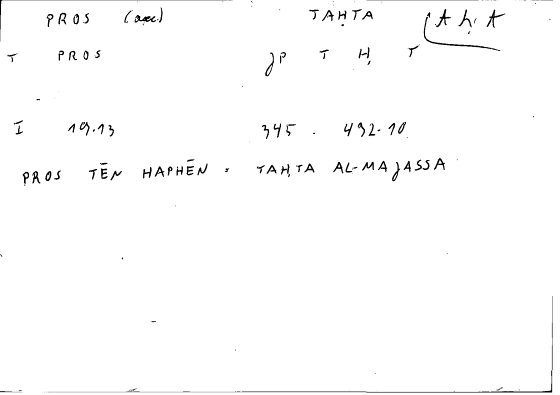 PROS (acc) TAḤTA AḥA
T PROS ȷP T Ḥ T
I 19.13 345. 492.10
PROS TĒN HAPHĒN = TAḤTA AL-MAȷASSA